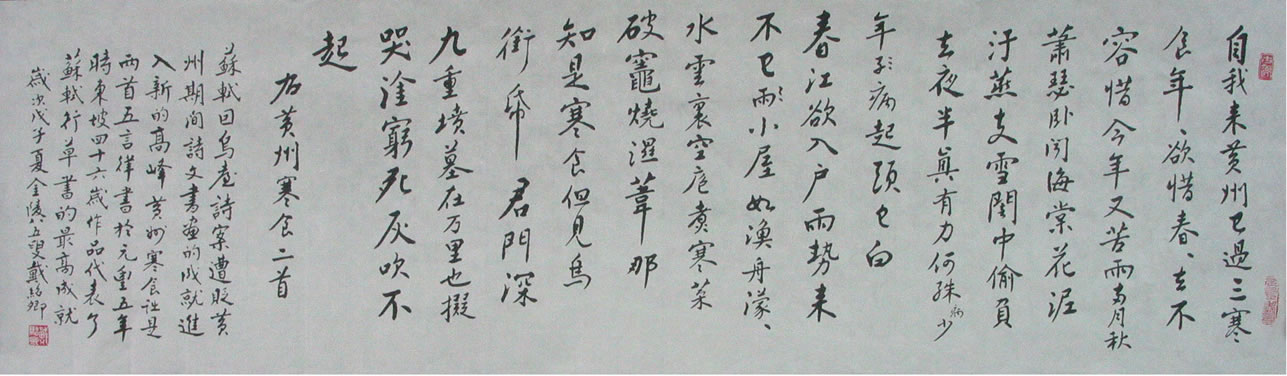 自我来黄州已過三寒
食年、欲惜春、去不
容惜今年又苦雨両月秋
蕭瑟卧闻海棠花泥
汙燕支雪闇中偷負
去夜半真有力何殊病少
年子病起頭已白
春江欲入户雨勢来
不已雨小屋如漁舟濛、
水雲裏空庖煮寒菜
破竈燒溼葦那
知是寒食但見烏
銜帋 君門深
九重墳墓在万里也擬
哭塗窮死灰吹不
起
右黄州寒食二首
蘇軾因烏臺詩案遭贬黄
州期间詩文書画的成就進
入新的高峰黄州寒食詩是
两首五言律書於元豊五年
時東坡四十六歲作品代表了
蘇軾行草書的最高成就
歲次戊子夏金陵五叟戴紹卿